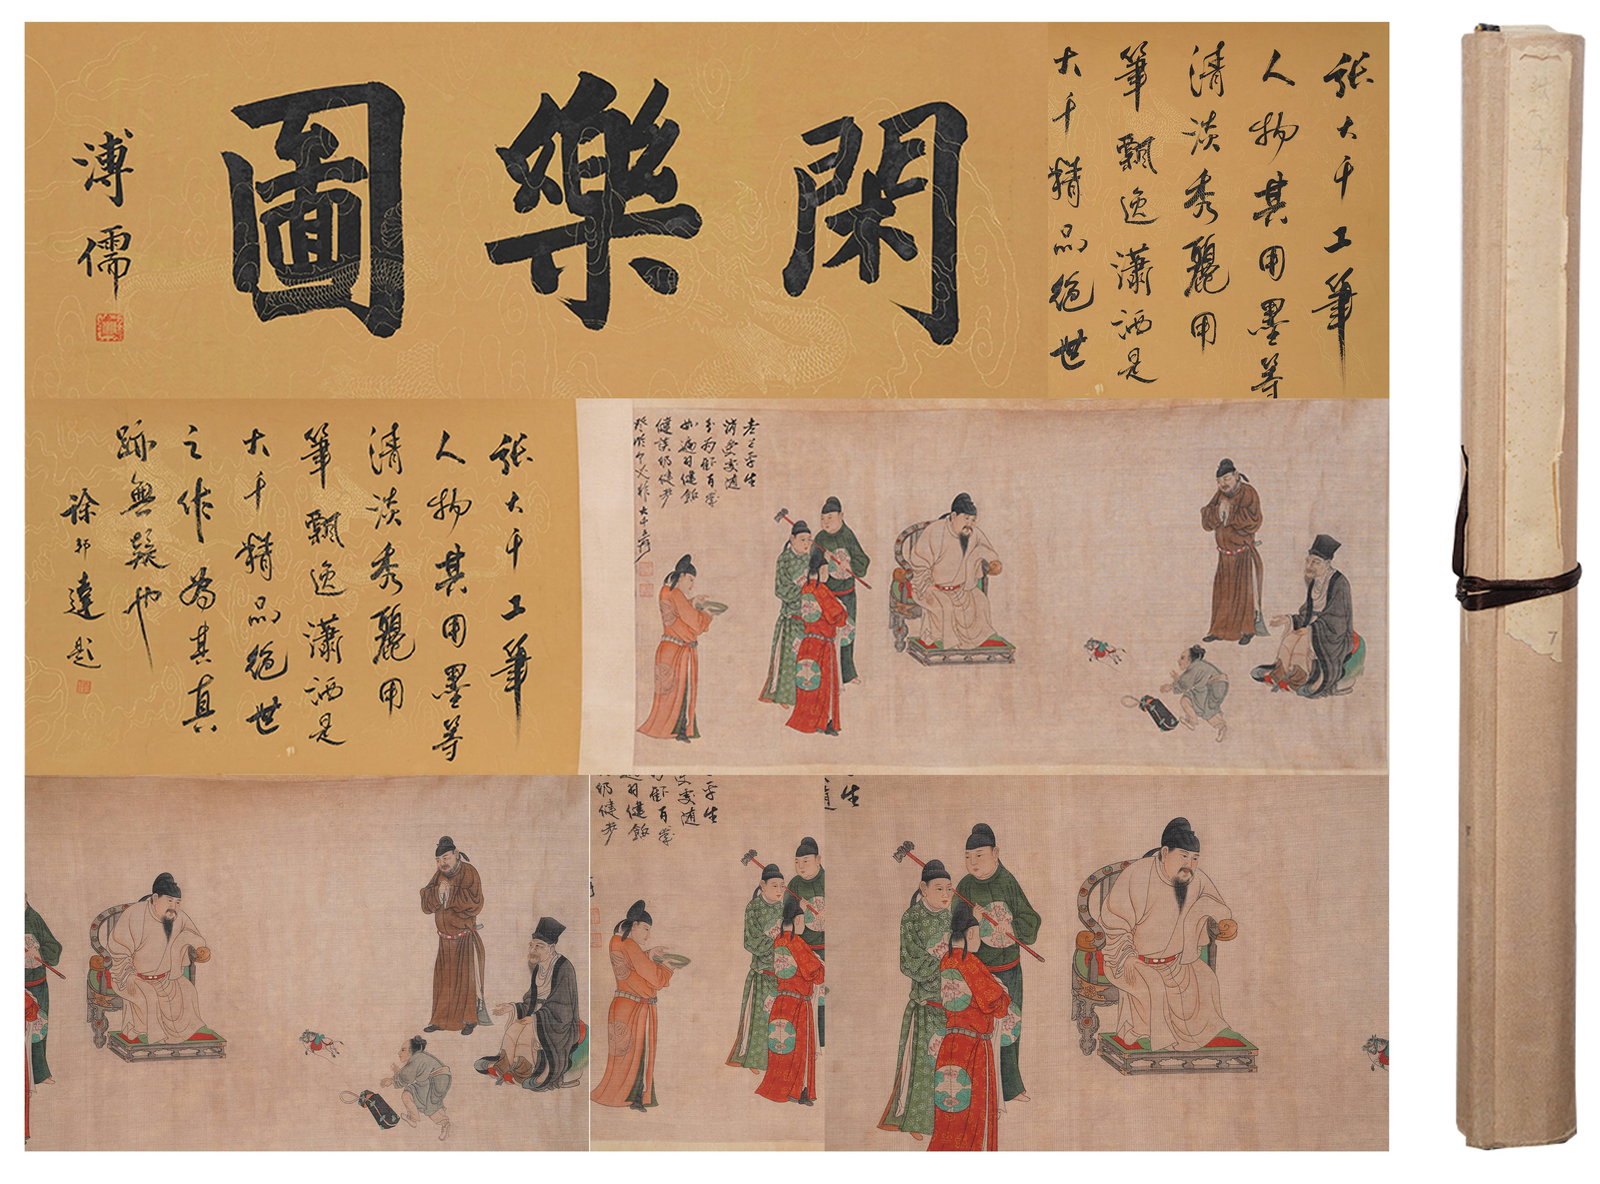 閑樂圖
溥儒
張大千工筆
人物其用墨等
清淡秀麗用
筆飄逸瀟洒是
大千精品絕世
張大千工筆
人物其用墨等
清淡秀麗用
筆飄逸瀟洒是
大千精品絕世
之作為其真
跡無疑也
徐邦達題
老子平生
消受處隨
健談仍健步
7